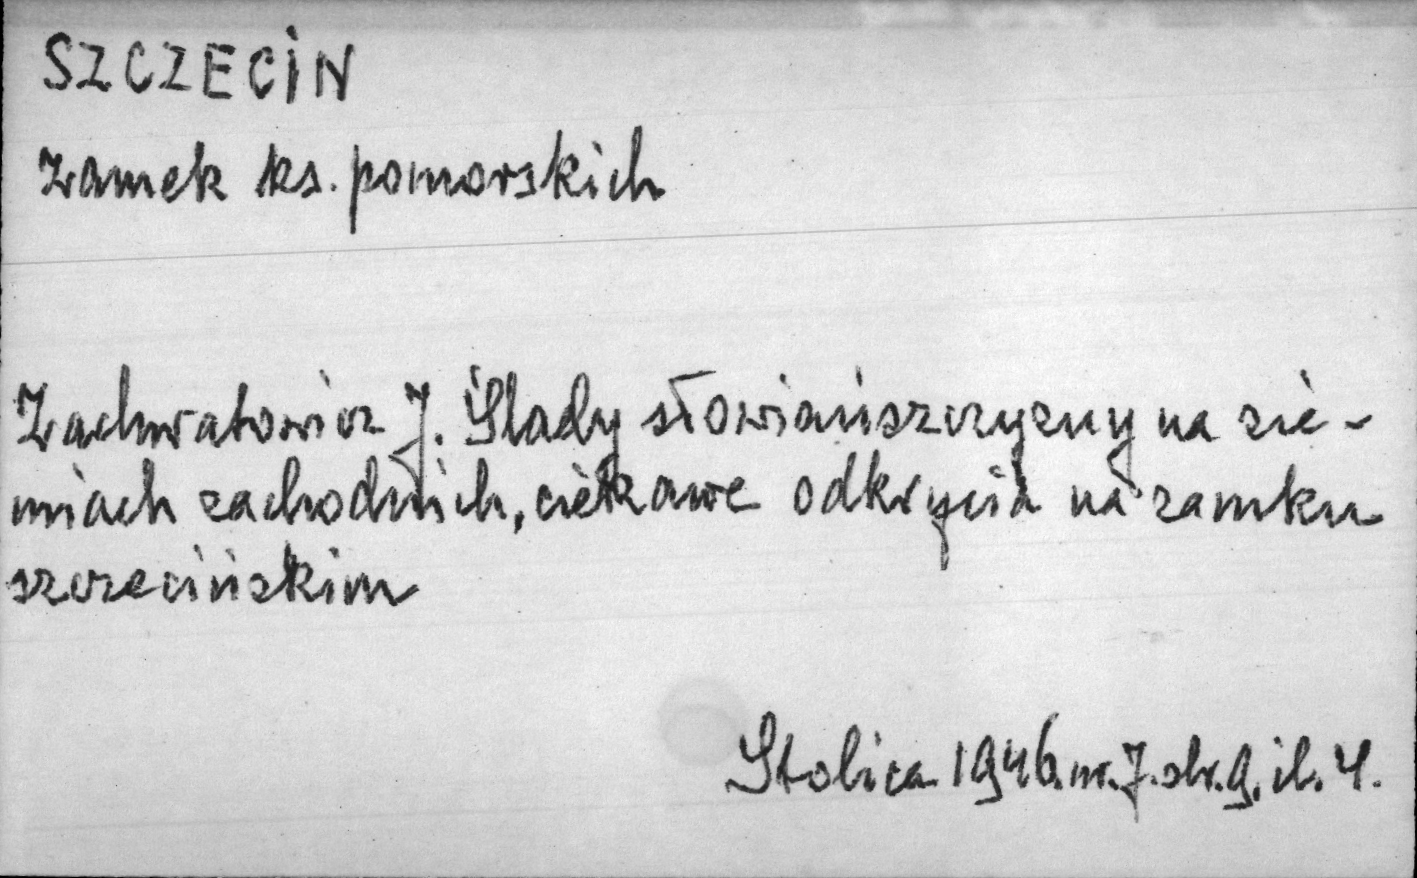 SZCZECIN
Zamek ks. pomorskich
Zachwatowicz J. Ślady słowiańszczyzny na zie-
miach zachodnich, ciekawe odkrycia na zamku
szczecińskim
Stolica 1946. nr. 7. str. 9. il. 4.